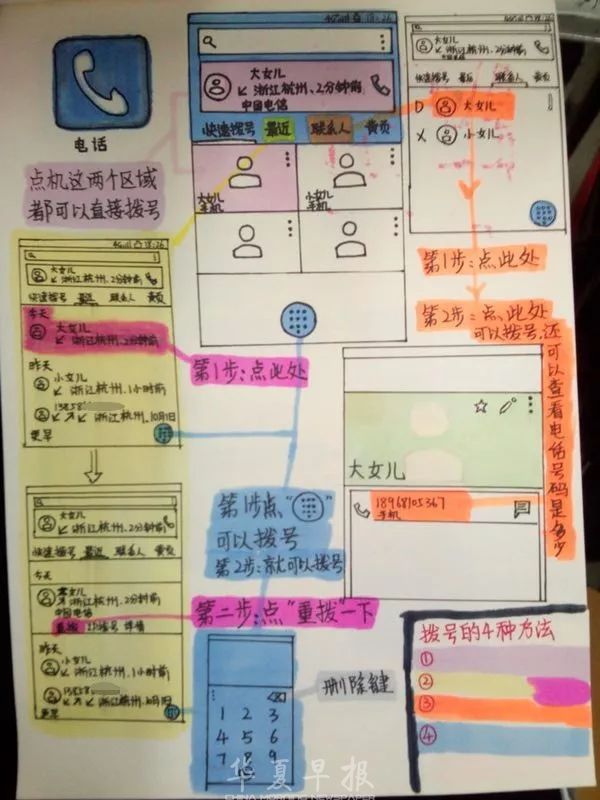 电话
点机这两个区域
都可以直接拨号
4G 18:26
大女儿
↙ 浙江杭州、2分钟前
中国电信
快速拨号 最近 联系人 黄页
大女儿
手机
小女儿
手机
大女儿
↙ 浙江杭州、2分钟前
中国电信
快速拨号 最近 联系人 黄页
D 大女儿
X 小女儿
第1步:点此处
第2步:点此处
可以拨号,还
可以查看电话号码是多少
18:26
大女儿
↙ 浙江杭州,2分钟前
快速拨号 最近 联系人 黄页
今天
大女儿
↙ 浙江杭州,2分钟前
昨天
小女儿
↙ 浙江杭州,1小时前
13858
↙ ↗ 浙江杭州,10月1日
更早
第1步:点此处
大女儿
↙ 浙江杭州、2分钟前
快速拨号 最近 联系人 黄页
今天
浙江杭州、2分钟前
中国电信
重拨 详情
昨天
小女儿
↙ 浙江杭州,1小时前
13858
↙ ↗ 浙江杭州,10月1日
更早
第1步点“ ”
可以拨号
第2步:就可以拨号
第二步:点“重拨”一下
大女儿
18968105367
手机
1 2 3
4 5 6
7 8 9
删除键
拨号的4种方法
①
②
③
④
华夏早报
CHINA MORNING NEWSPAPER